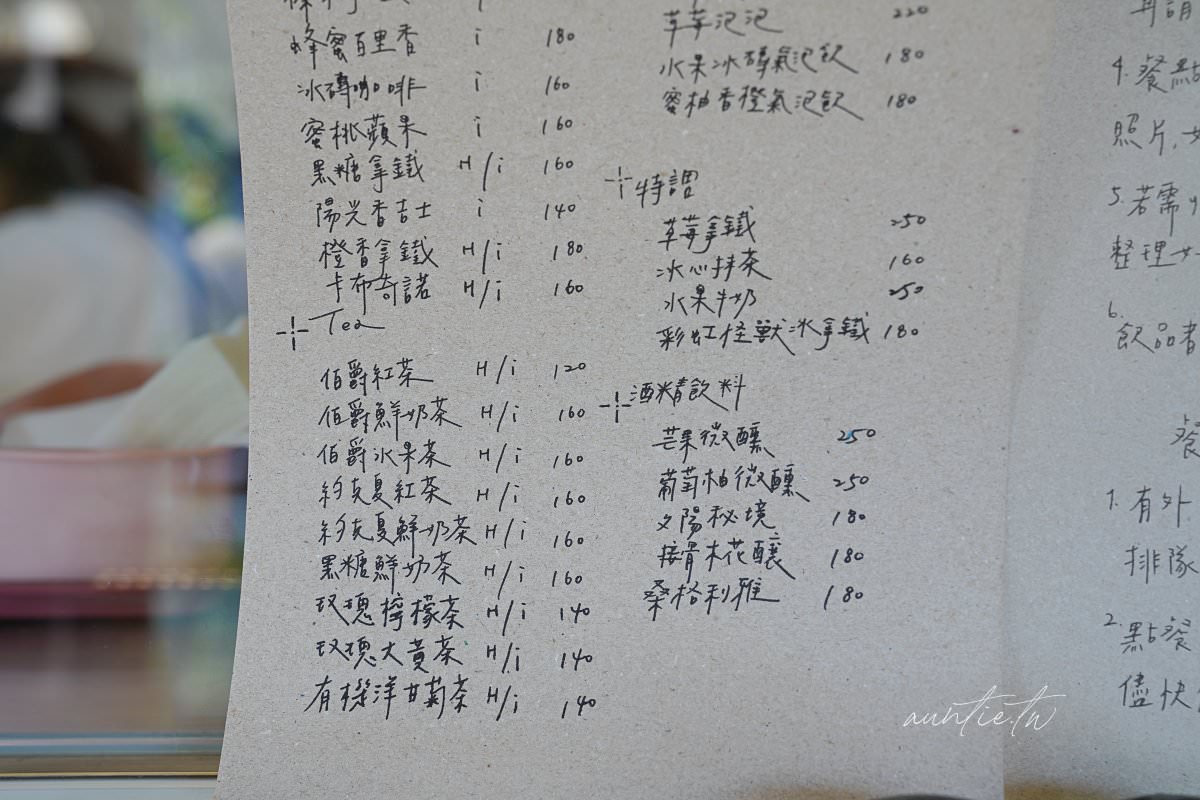 蜂蜜百里香 i 180
冰磚咖啡 i 160
蜜桃蘋果 i 160
黑糖拿鐵 H/i 160
陽光香吉士 i 140
橙香拿鐵 H/i 180
卡布奇諾 H/i 160
Tea
伯爵紅茶 H/i 120
伯爵鮮奶茶 H/i 160
伯爵水果茶 H/i 160
約克夏紅茶 H/i 160
約克夏鮮奶茶 H/i 160
黑糖鮮奶茶 H/i 160
玫瑰檸檬茶 H/i 140
玫瑰大黃茶 H/i 140
有機洋甘菊茶 H/i 140
莓莓泡泡 220
水果冰磚氣泡飲 180
蜜柚香橙氣泡飲 180
特調
草莓拿鐵 250
冰心抹茶 160
水果牛奶 250
彩虹怪獸冰拿鐵 180
酒精飲料
芒果微醺 250
葡萄柚微醺 250
夕陽秘境 180
接骨木花釀 180
桑格利雅 180
再請
4. 餐點
照片,
5. 若需
整理
6.
飲品者
餐
1. 有外
排隊
2. 點餐
儘快
auntie.tw